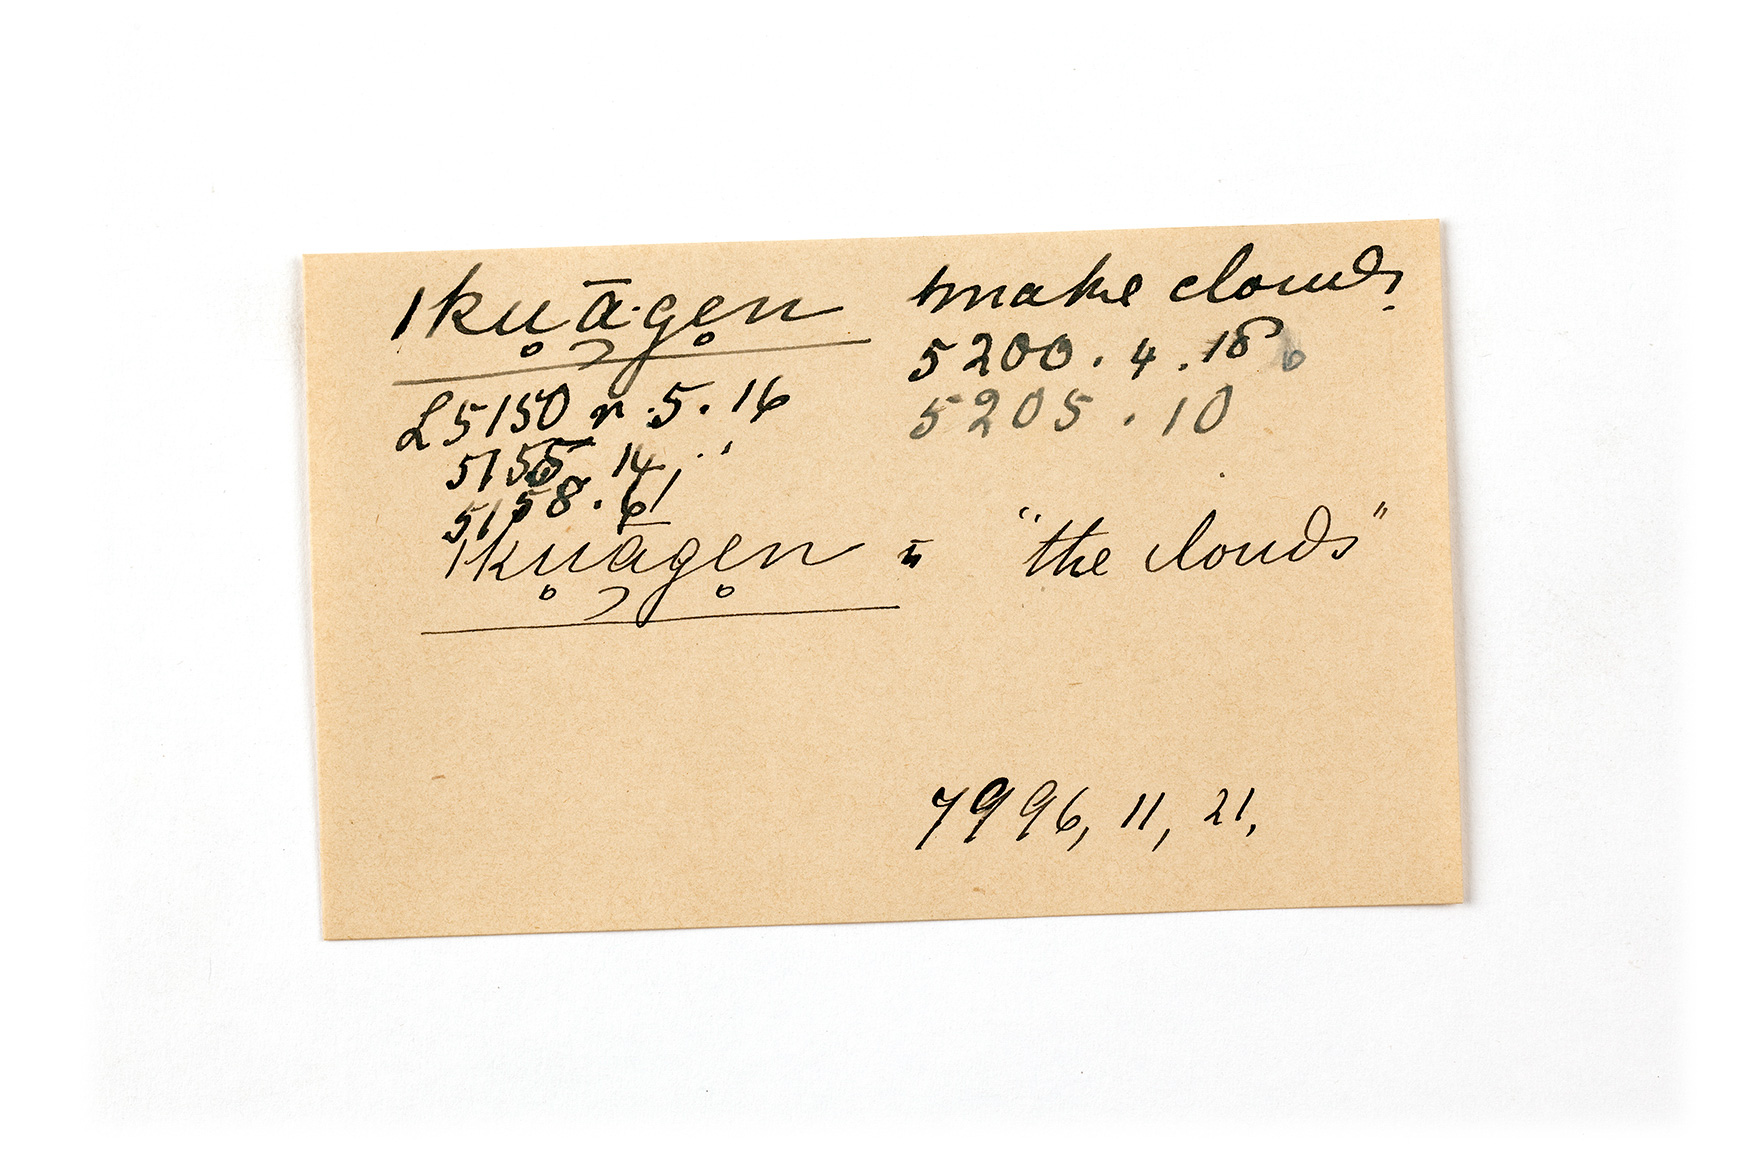 iku̥ā·ge̥n to make clouds
5200.4.18
L5150 r.5.16 5205.10
5155.14
5158.61
iku̥āge̥n "the clouds"
7996, 11, 21.